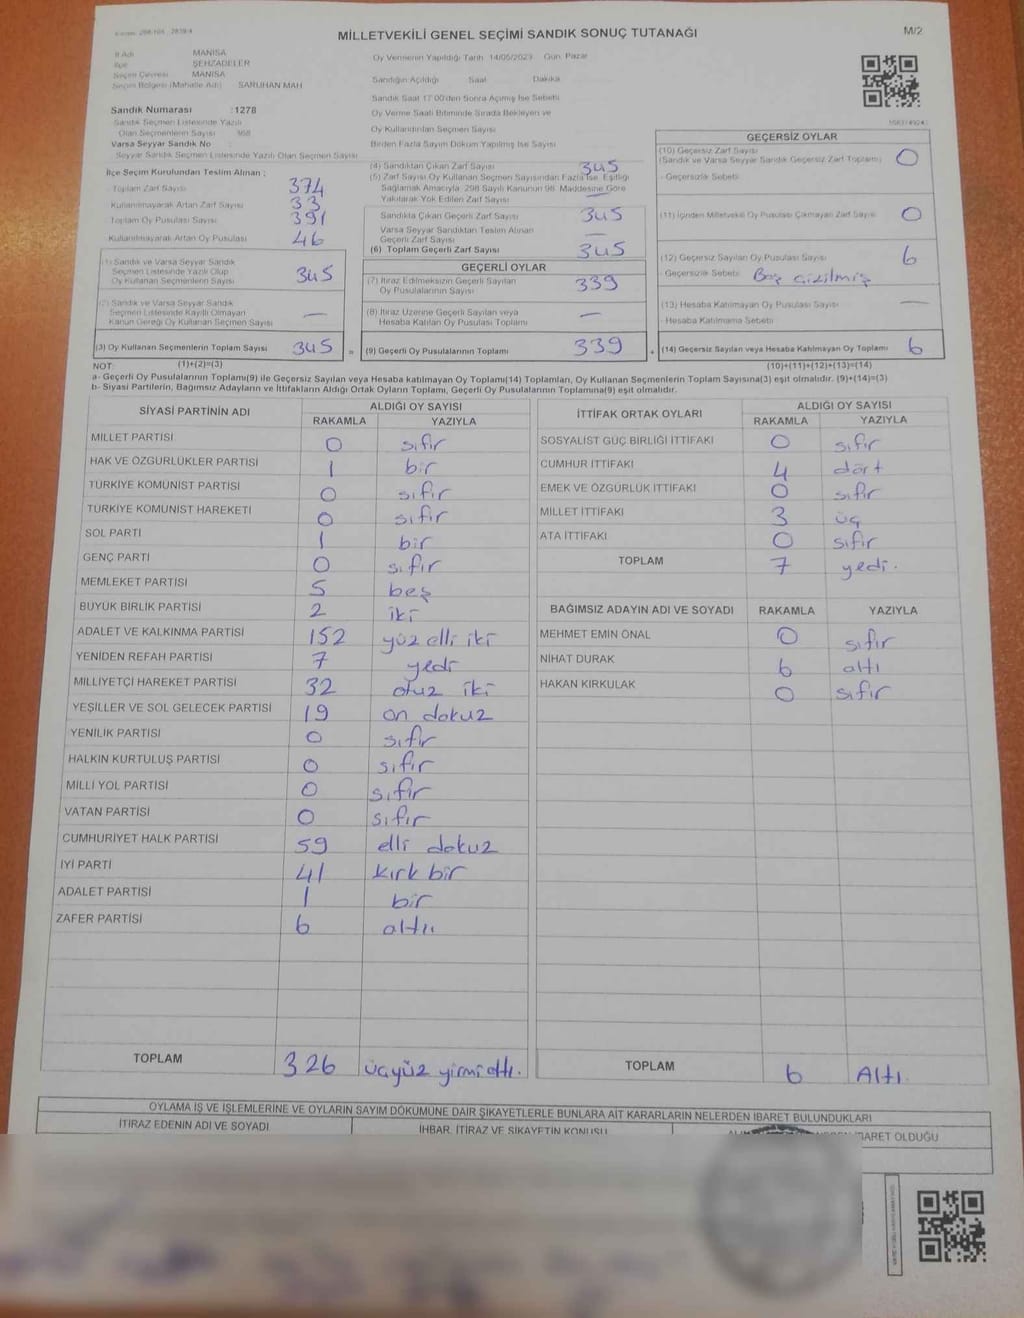 MİLLETVEKİLİ GENEL SEÇİMİ SANDIK SONUÇ TUTANAĞI
M/2
İl Adı MANİSA
İlçe ŞEHZADELER
Seçim Çevresi MANİSA
Seçim Bölgesi (Mahalle Adı) SARUHAN MAH
Sandık Numarası : 1278
Sandık Seçmen Listesinde Yazılı
Olan Seçmenlerin Sayısı
Varsa Seyyar Sandık No
Seyyar Sandık Seçmen Listesinde Yazılı Olan Seçmen Sayısı
Oy Vermenin Yapıldığı Tarih 14/05/2023 Gün Pazar
Sandığın Açıldığı Saat Dakika
Sandık Saat 17:00'den Sonra Açılmış İse Sebebi
Oy Verme Saati Bitiminde Sırada Bekleyen ve
Oy Kullandırılan Seçmen Sayısı
Birden Fazla Sayım Döküm Yapılmış İse Sayısı
İlçe Seçim Kurulundan Teslim Alınan :
Toplam Zarf Sayısı 374
Kullanılmayarak Artan Zarf Sayısı 33
Toplam Oy Pusulası Sayısı 391
Kullanılmayarak Artan Oy Pusulası 46
(1) Sandık ve Varsa Seyyar Sandık
Seçmen Listesinde Yazılı Olup
Oy Kullanan Seçmenlerin Sayısı 345
(2) Sandık ve Varsa Seyyar Sandık
Seçmen Listesinde Kayıtlı Olmayan
Kanun Gereği Oy Kullanan Seçmen Sayısı —
(3) Oy Kullanan Seçmenlerin Toplam Sayısı 345 =
(4) Sandıktan Çıkan Zarf Sayısı 345
(5) Zarf Sayısı Oy Kullanan Seçmen Sayısından Fazla İse, Eşitliği
Sağlamak Amacıyla 298 Sayılı Kanunun 98. Maddesine Göre
Yakılarak Yok Edilen Zarf Sayısı —
Sandıkta Çıkan Geçerli Zarf Sayısı 345
Varsa Seyyar Sandıktan Teslim Alınan
Geçerli Zarf Sayısı —
(6) Toplam Geçerli Zarf Sayısı 345
GEÇERLİ OYLAR
(7) İtiraz Edilmeksizin Geçerli Sayılan
Oy Pusulalarının Sayısı 339
(8) İtiraz Üzerine Geçerli Sayılan veya
Hesaba Katılan Oy Pusulası Toplamı —
(9) Geçerli Oy Pusulalarının Toplamı 339 +
GEÇERSİZ OYLAR
(10) Geçersiz Zarf Sayısı
(Sandık ve Varsa Seyyar Sandık Geçersiz Zarf Toplamı) 0
- Geçersizlik Sebebi
(11) İçinden Milletvekili Oy Pusulası Çıkmayan Zarf Sayısı 0
(12) Geçersiz Sayılan Oy Pusulası Sayısı 6
- Geçersizlik Sebebi Boş çizilmiş
(13) Hesaba Katılmayan Oy Pusulası Sayısı —
- Hesaba Katılmama Sebebi
(14) Geçersiz Sayılan veya Hesaba Katılmayan Oy Toplamı 6
NOT: (1)+(2)=(3) (10)+(11)+(12)+(13)=(14)
a- Geçerli Oy Pusulalarının Toplamı(9) ile Geçersiz Sayılan veya Hesaba katılmayan Oy Toplamı(14) Toplamları, Oy Kullanan Seçmenlerin Toplam Sayısına(3) eşit olmalıdır. (9)+(14)=(3)
b- Siyasi Partilerin, Bağımsız Adayların ve İttifakların Aldığı Ortak Oyların Toplamı, Geçerli Oy Pusulalarının Toplamına(9) eşit olmalıdır.
SİYASİ PARTİNİN ADI ALDIĞI OY SAYISI
RAKAMLA YAZIYLA
MİLLET PARTİSİ 0 sıfır
HAK VE ÖZGÜRLÜKLER PARTİSİ 1 bir
TÜRKİYE KOMÜNİST PARTİSİ 0 sıfır
TÜRKİYE KOMÜNİST HAREKETİ 0 sıfır
SOL PARTİ 1 bir
GENÇ PARTİ 0 sıfır
MEMLEKET PARTİSİ 5 beş
BÜYÜK BİRLİK PARTİSİ 2 iki
ADALET VE KALKINMA PARTİSİ 152 yüz elli iki
YENİDEN REFAH PARTİSİ 7 yedi
MİLLİYETÇİ HAREKET PARTİSİ 32 otuz iki
YEŞİLLER VE SOL GELECEK PARTİSİ 19 on dokuz
YENİLİK PARTİSİ 0 sıfır
HALKIN KURTULUŞ PARTİSİ 0 sıfır
MİLLİ YOL PARTİSİ 0 sıfır
VATAN PARTİSİ 0 sıfır
CUMHURİYET HALK PARTİSİ 59 elli dokuz
İYİ PARTİ 41 kırk bir
ADALET PARTİSİ 1 bir
ZAFER PARTİSİ 6 altı
TOPLAM 326 üçyüz yirmi altı.
İTTİFAK ORTAK OYLARI ALDIĞI OY SAYISI
RAKAMLA YAZIYLA
SOSYALİST GÜÇ BİRLİĞİ İTTİFAKI 0 sıfır
CUMHUR İTTİFAKI 4 dört
EMEK VE ÖZGÜRLÜK İTTİFAKI 0 sıfır
MİLLET İTTİFAKI 3 üç
ATA İTTİFAKI 0 sıfır
TOPLAM 7 yedi.
BAĞIMSIZ ADAYIN ADI VE SOYADI RAKAMLA YAZIYLA
MEHMET EMİN ÖNAL 0 sıfır
NİHAT DURAK 6 altı
HAKAN KIRKULAK 0 sıfır
TOPLAM 6 Altı.
OYLAMA İŞ VE İŞLEMLERİNE VE OYLARIN SAYIM DÖKÜMÜNE DAİR ŞİKAYETLERLE BUNLARA AİT KARARLARIN NELERDEN İBARET BULUNDUKLARI
İTİRAZ EDENİN ADI VE SOYADI İHBAR, İTİRAZ VE ŞİKAYETİN KONUSU İBARET OLDUĞU